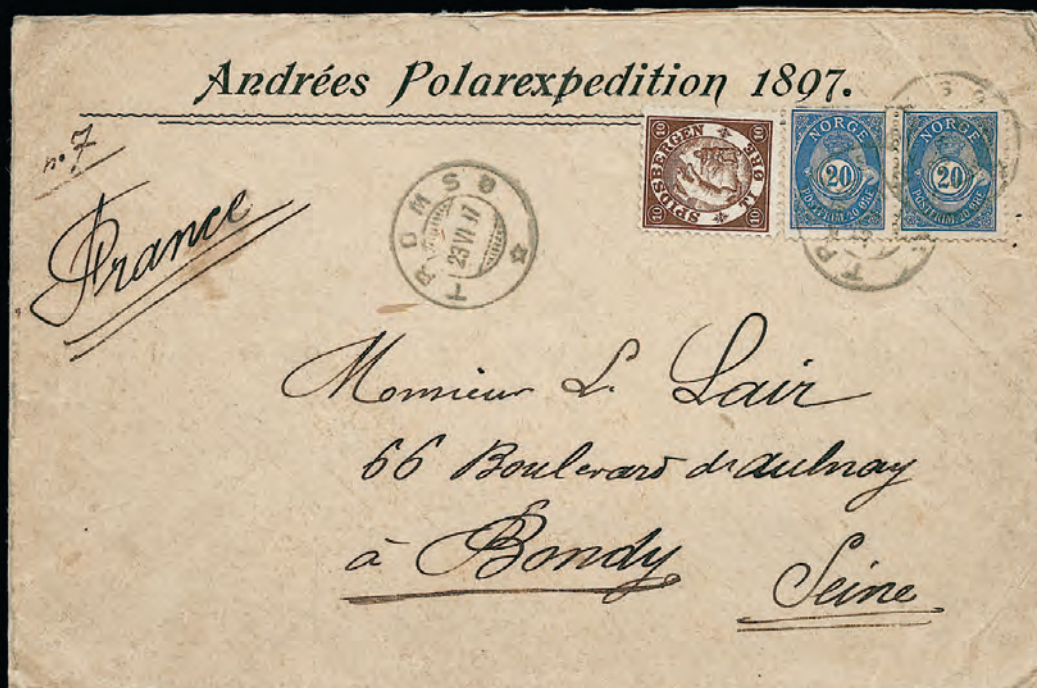 Andrées Polarexpedition 1897.
nº 7
France
TROMSØ
23 VI 17
10 10
SPIDSBERGEN
10 ØRE 10
NORGE
20
POSTFRIM. 20 ØRE
NORGE
20
POSTFRIM. 20 ØRE
Monsieur L. Lair
66 Boulevard d'aulnay
à Bondy
Seine